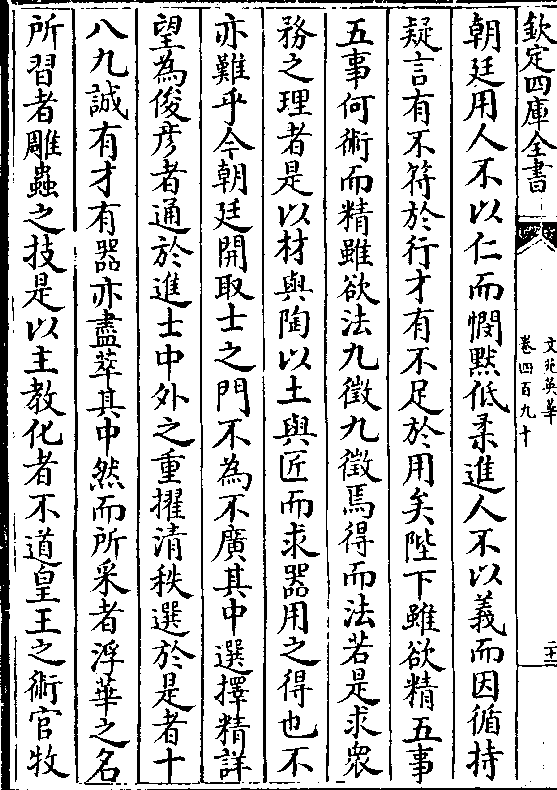 欽定四庫全書
文苑英華
卷四百九十
二十二
朝廷用人不以仁而憫黙低柔進人不以義而因循持
疑言有不符於行才有不足於用矣陛下雖欲精五事
五事何術而精雖欲法九徵九徵焉得而法若是求衆
務之理者是以材與陶以土與匠而求器用之得也不
亦難乎今朝廷開取士之門不為不廣其中選擇精詳
望為俊彦者通於進士中外之重擢清秩選於是者十
八九誠有才有器亦盡萃其中然而所采者浮華之名
所習者雕蟲之技是以主教化者不道皇王之術官牧